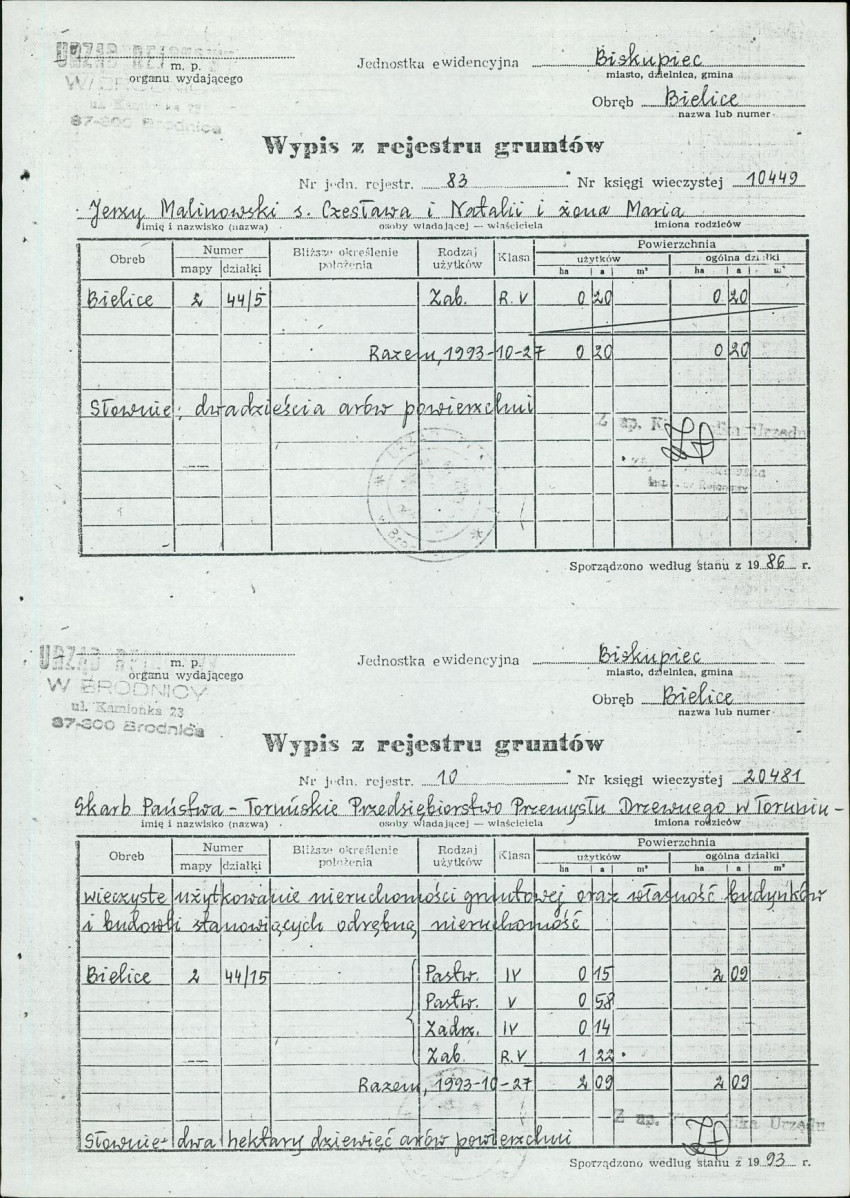 URZĄD REJONOWY
W BRODNICY
ul. Kamionka 23
87-300 Brodnica
m. p.
organu wydającego
Jednostka ewidencyjna Biskupiec
miasto, dzielnica, gmina
Obręb Bielice
nazwa lub numer
Wypis z rejestru gruntów
Nr jedn. rejestr. 83 Nr księgi wieczystej 10449
Jerzy Malinowski s. Czesława i Natalii i żona Maria
imię i nazwisko (nazwa) osoby władającej — właściciela imiona rodziców
Obręb Numer Bliższe określenie położenia Rodzaj użytków Klasa Powierzchnia
mapy działki użytków ogólna działki
ha a m² ha a m²
Bielice 2 44/5 Zab. R.V 0 20 0 20
Razem, 1993-10-27 0 20 0 20
Słownie: dwadzieścia arów powierzchni
Z up. Urzędu
Sporządzono według stanu z 1986 r.
URZĄD REJONOWY
W BRODNICY
ul. Kamionka 23
87-300 Brodnica
m. p.
organu wydającego
Jednostka ewidencyjna Biskupiec
miasto, dzielnica, gmina
Obręb Bielice
nazwa lub numer
Wypis z rejestru gruntów
Nr jedn. rejestr. 10 Nr księgi wieczystej 20481
Skarb Państwa - Toruńskie Przedsiębiorstwo Przemysłu Drzewnego w Toruniu -
imię i nazwisko (nazwa) osoby władającej — właściciela imiona rodziców
Obręb Numer Bliższe określenie położenia Rodzaj użytków Klasa Powierzchnia
mapy działki użytków ogólna działki
ha a m² ha a m²
wieczyste użytkowanie nieruchomości gruntowej oraz własność budynków
i budowli stanowiących odrębną nieruchomość
Bielice 2 44/15 Pastw. IV 0 15 2 09
Pastw. V 0 58
Zadrz. IV 0 14
Zab. R.V 1 22
Razem, 1993-10-27 2 09 2 09
Z up. Urzędu
Słownie - dwa hektary dziewięć arów powierzchni
Sporządzono według stanu z 1993 r.